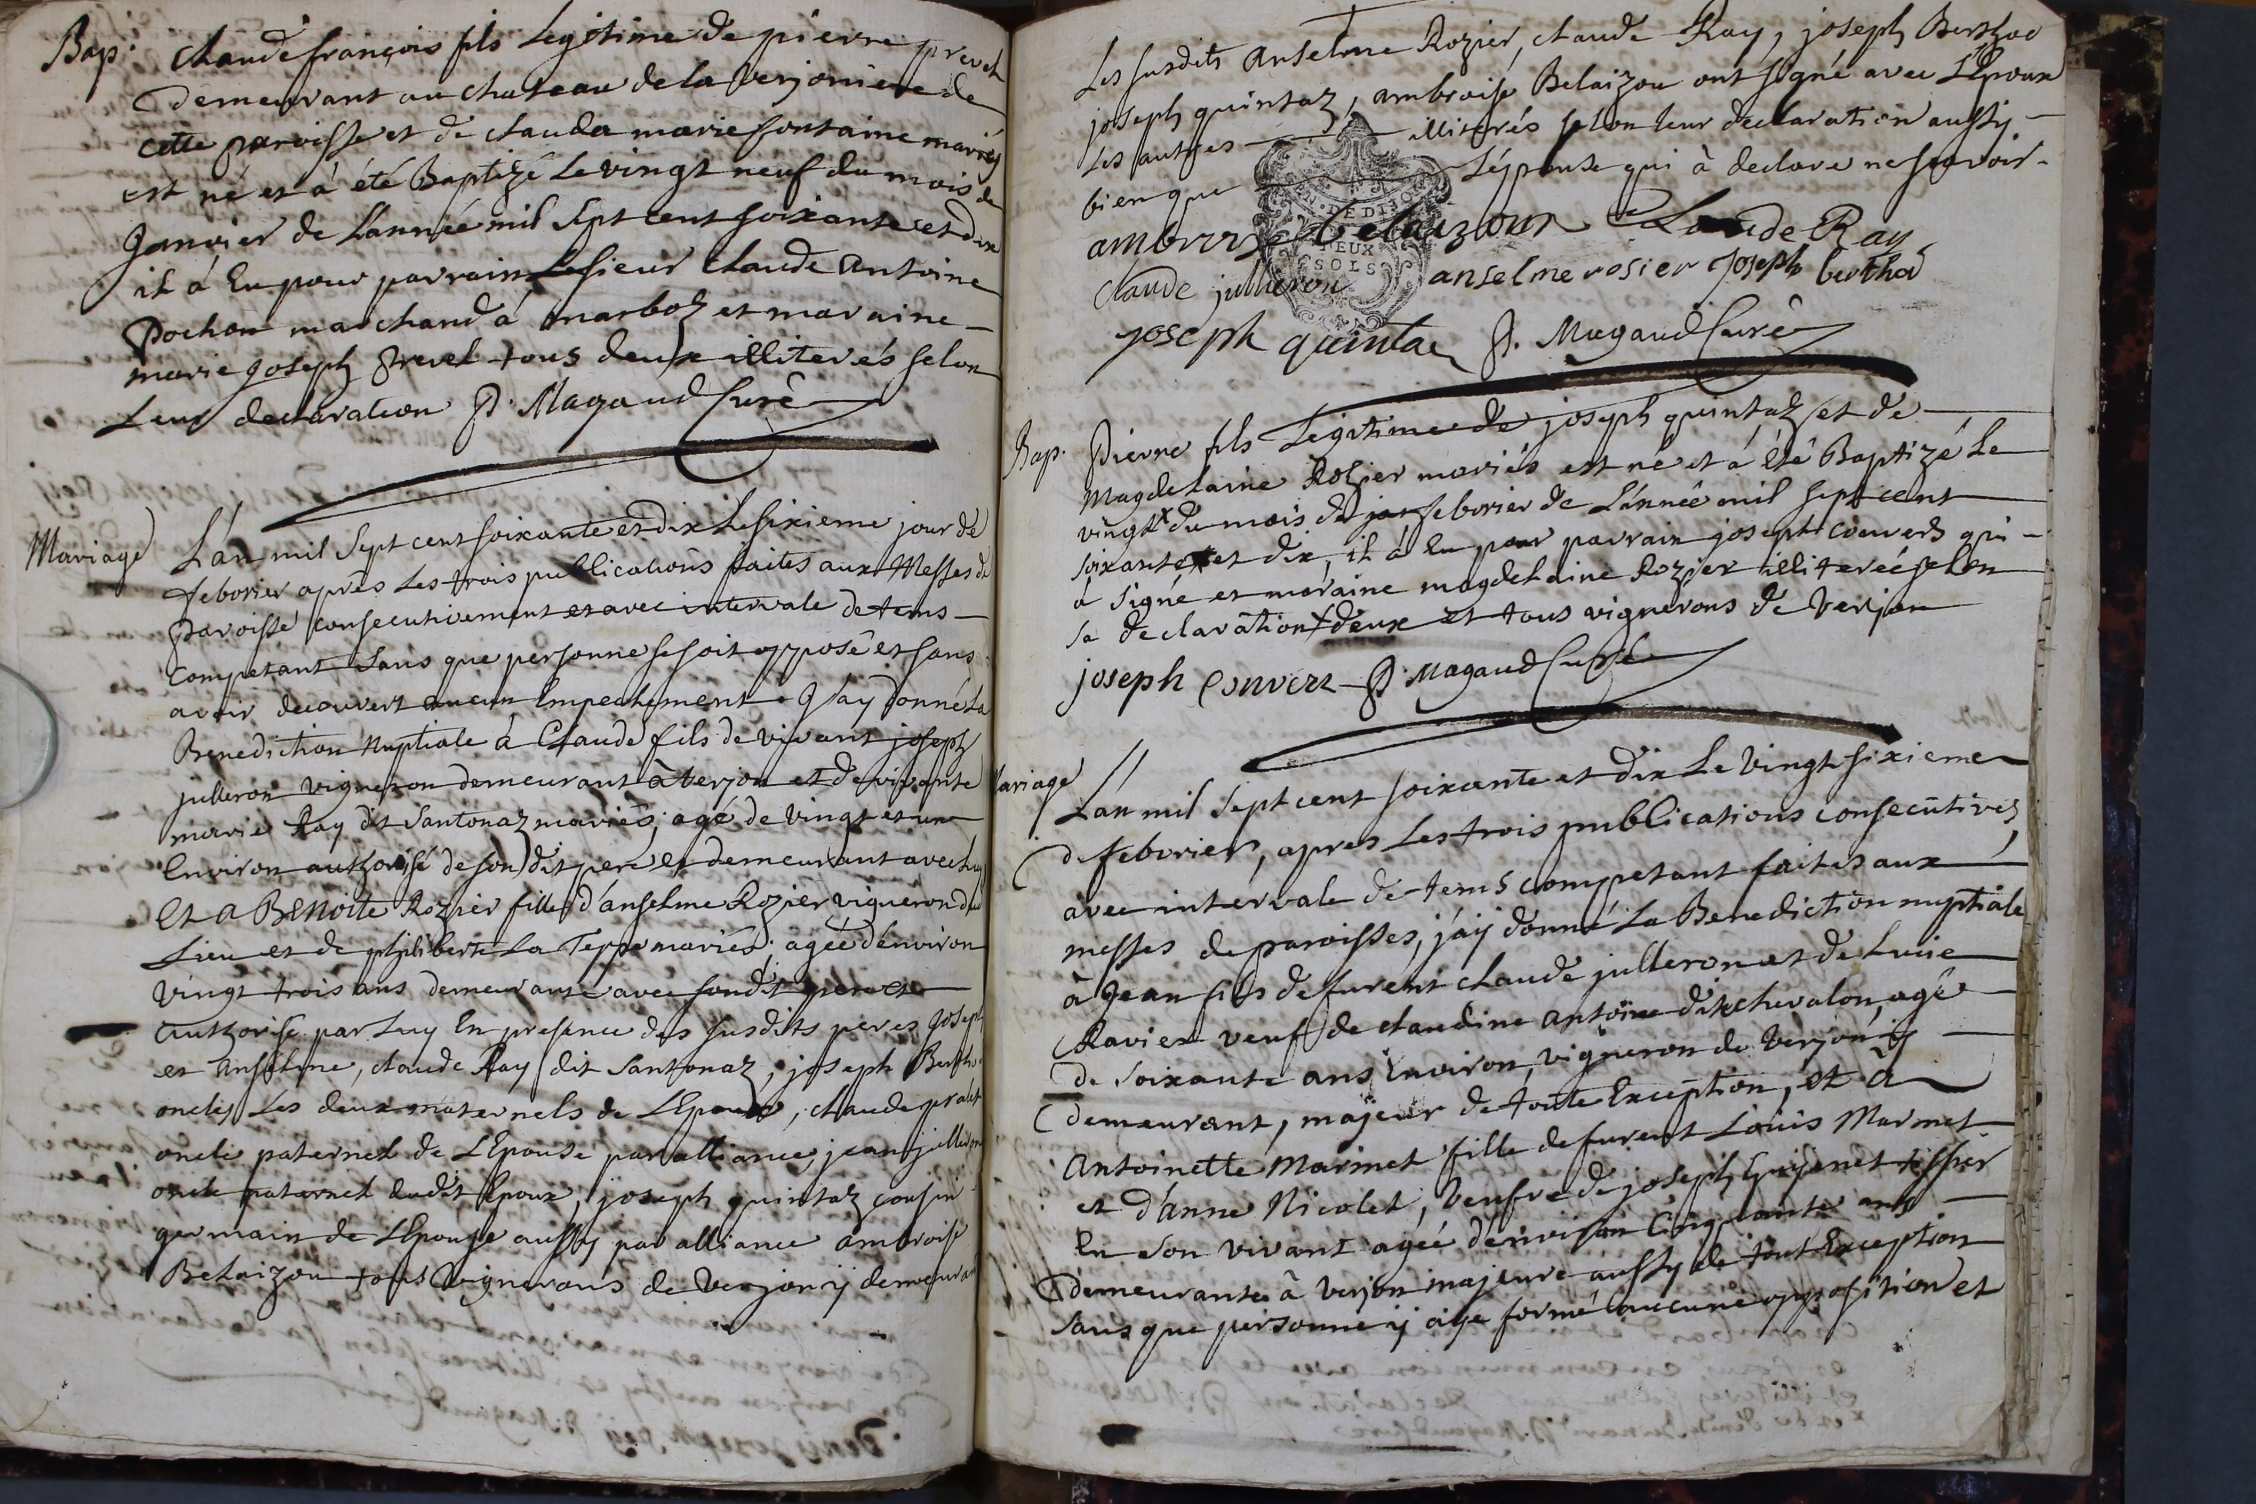 Bap: Claude françois fils Legitime de pierre prevel
demeurant au chateau de la verjoniere de
cette paroisse et de clauda marie fontaine mariés
est né et à été Baptizé Le vingt neuf du mois de
Janvier de L'année mil Sept cent soixante et dix
il à Eu pour parrain Lesieur claude antoine
Pochon marchand à marboz et maraine
marie joseph prevel tous deux illiterés selon
Leur declaration P. Magaud Curé
Mariage L'an mil Sept cent soixante et dix Le sixieme jour de
feborier après Les trois publications faites aux Messes de
paroisse consecutivement et avec intervale de tems
competant sans que personne se soit opposé et sans
avoir decouvert aucun Empechement Jay donné La
Benediction Nuptiale à Claude fils de vivant joseph
julleron vigneron demeurant à verjon et de vivante
marie Ray dit Santonaz mariés, agé de vingt et un
Environ authorisé de son dit pere et demeurant avec luy
Et a BENoite Rozier fille d'anselme Rozier vigneron du
Lieu et de philiberte La Teppe mariés agée d'environ
vingt trois ans demeurante avec sondit pere et
authorisé par Luy En presence des susdits peres joseph
et Anselme, claude Ray dit Santonaz, joseph Bertho
oncles Les deux maternels de L'Epoux, claude
oncle paternel de L'Epouse par alliance, jean julleron
oncle paternel dudit Epoux, joseph quintaz cousin
germain de L'Epouse aussy par alliance ambroise
Belaizou tous vignerons de Verjon ij demeurant
Les susdits Anselme Rozier, claude Ray, joseph Berthod
joseph quintaz, ambroise Belaizou ont signé avec L'Epoux
Les autres illiterés selon leur declaration aussy
bien que L'épouse qui à declare ne scavoir
N. DE DIJON
DEUX
SOLS
ambroise belaizoux Claude Ray
Claude julleron anselme rosier Joseph berthod
joseph quintaz P. Magaud Curé
Bap. Pierre fils Legitime de joseph quintaz et de
Magdelaine Rozier mariés est né et à été Baptizé Le
vingt du mois de feborier de L'année mil sept cent
soixante et dix, il à Eu pour parrain joseph convers qui
à signé et maraine magdelaine Rozier illiterée selon
sa declaration deux et tous vignerons de Verjon
joseph Convert P. Magaud Curé
Mariage L'an mil Sept cent soixante et dix Le vingt sixieme
de feborier, apres Les trois publications consecutives,
avec intervale de tems competant faites aux
messes de paroisses, j'aij donné La Benediction nuptiale
à Jean fils defurent claude julleron et de Lucie
Ravier veuf de claudine antoine dit chevalon, agé
de soixante ans Environ, vigneron de Verjon ij
demeurant, majeur de toute Exception, et à
Antoinette Marmet fille defurent Loüis Marmet
et d'anne Nicolet, veufve de joseph tissier
En son vivant agée d'environ Cinquante ans
demeurante à verjon majeure aussy de tout Exception
sans que personne ij aije formé aucune opposition et